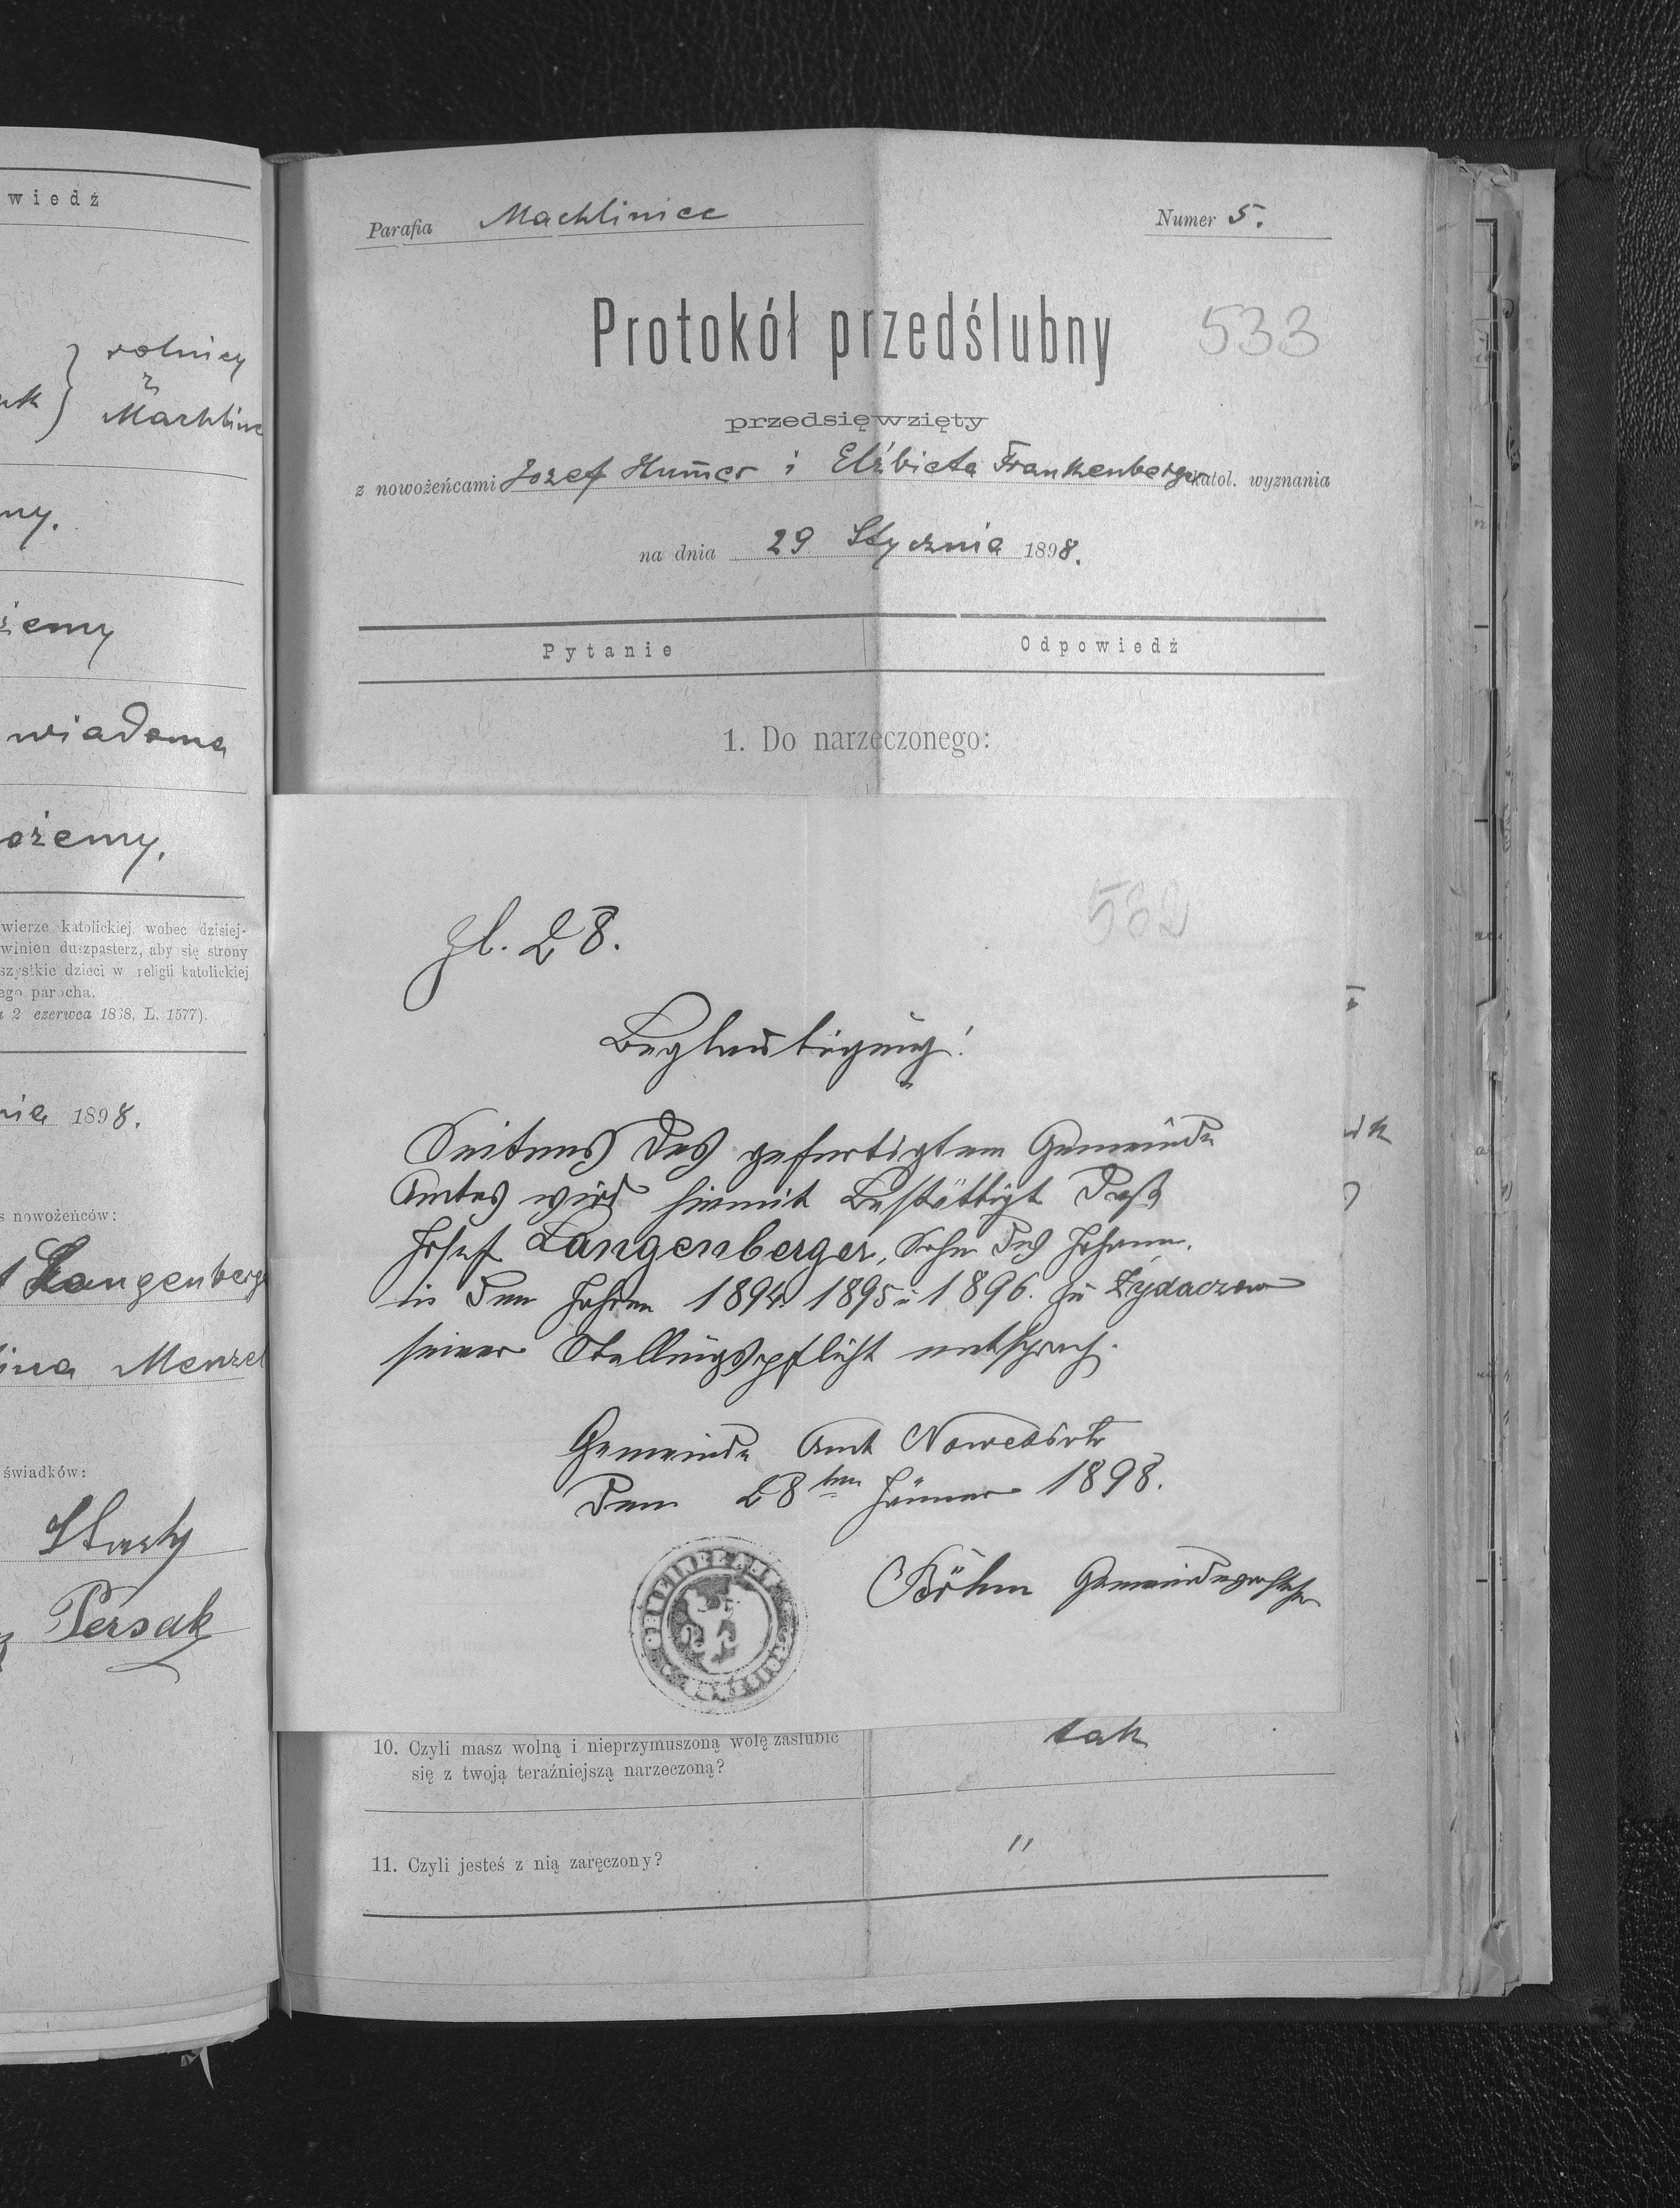 wiedź
rolnicy
z
Machlinc
ny.
żemy
wiadoma
ożemy,
wierze katolickiej, wobec dzisiej-
winien duszpasterz, aby się strony
szystkie dzieci w religii katolickiej
ego parocha.
2 czerwca 1868, L. 1577).
nia 1898.
s nowożeńców:
Langenberge
ina Menzel
świadków:
Persak
Parafia Machliniec
Numer 5.
Protokół przedślubny
533
przedsięwzięty
z nowożeńcami Jozef Hum̄er i Elżbieta Frankenberger katol. wyznania
na dnia 29 Stycznia 1898.
Pytanie
Odpowiedź
1. Do narzeczonego:
532
Zl. 28.
Beglaubigung!
Seitens des gefertigten Gemeinde
Amtes wird hiermit Bestättigt daß
Josef Langenberger, Sohn des Johann.
in den Jahren 1894. 1895 u 1896. zu Żydaczow
seiner Stellungspflicht entsprach.
Gemeinde Amt Nowesioło
den 28ten Jänner 1898.
Böhm Gemeindevorsteher
GEMEINDEAMT
10. Czyli masz wolną i nieprzymuszoną wolę zaślubić
się z twoją teraźniejszą narzeczoną?
tak
11. Czyli jesteś z nią zaręczony?
"